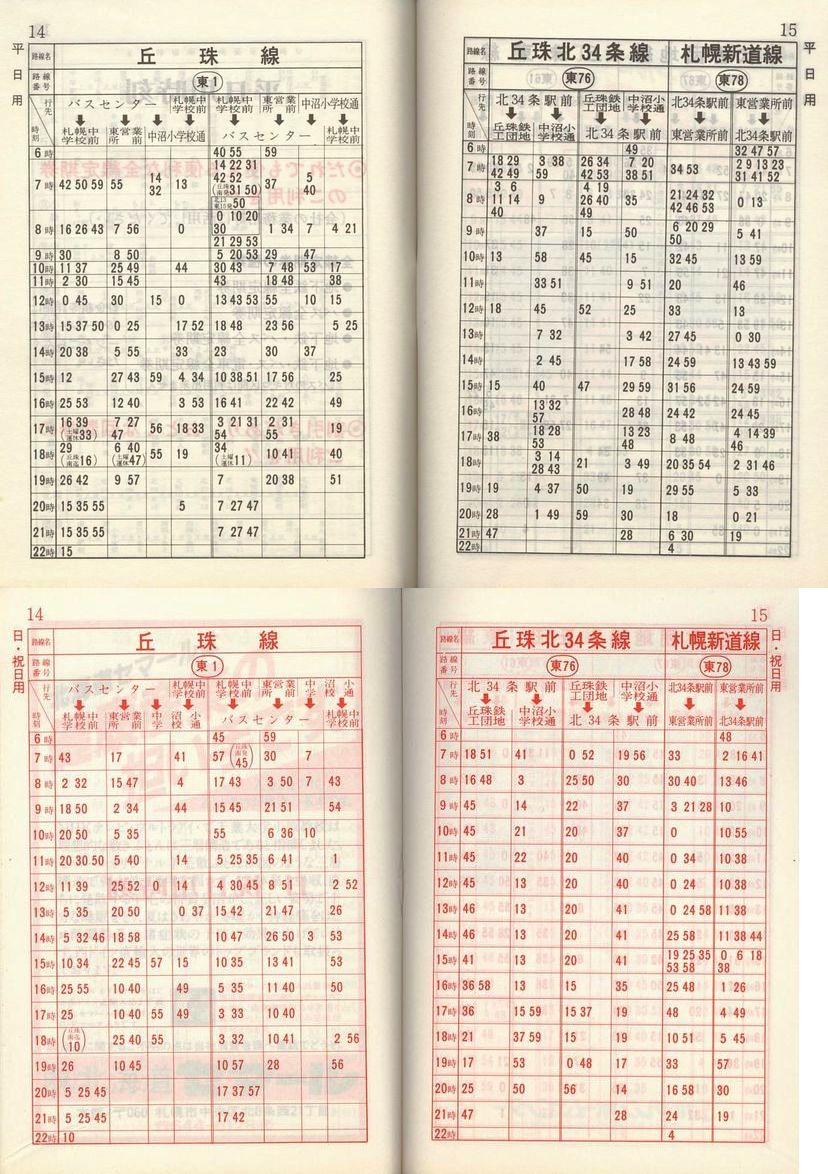 14
平日用
路線名 丘珠線
路線番号 東1
行先 バスセンター 札幌中学校前 札幌中学校前 東営業所前 中沼小学校通
時刻 札幌中学校前 東営業所前 中沼小学校通 バスセンター 札幌中学校前
6時 40 55 59
14 22 31
7時 42 50 59 55 14 32 13 42 52 (丘珠南発31) 50 37 5 40
50
8時 16 26 43 7 56 0 0 10 20 30 1 34 7 4 21
21 29 53
9時 30 8 50 5 20 53 29 47
10時 11 37 25 49 44 30 43 7 48 53 17
11時 2 30 15 45 43 18 48 38
12時 0 45 30 15 0 13 43 53 55 10 15
13時 15 37 50 0 25 17 52 18 48 23 56 5 25
14時 20 38 5 55 33 23 30 37
15時 12 27 43 59 4 34 10 38 51 17 56 25
16時 25 53 12 40 3 53 16 41 22 42 49
17時 16 39 (土曜運休33) 7 27 47 56 18 33 3 21 31 54 2 31 55 19
18時 29 (丘珠南迄16) 6 40 (土曜運休47) 55 19 34 (土曜運休11) 10 41 40
19時 26 42 9 57 7 20 38 51
20時 15 35 55 5 7 27 47
21時 15 35 55 7 27 47
22時 15
15
平日用
路線名 丘珠北34条線 札幌新道線
路線番号 東76 東78
行先 北34条駅前 丘珠鉄工団地 中沼小学校通 北34条駅前 東営業所前
時刻 丘珠鉄工団地 中沼小学校通 北34条駅前 東営業所前 北34条駅前
6時 49 32 47 57
7時 18 29 42 49 3 38 59 26 34 42 53 7 20 38 51 34 53 2 9 13 23 31 41 52
8時 3 6 11 14 40 9 4 19 26 40 49 35 21 24 32 42 46 53 0 13
9時 37 15 50 6 20 29 50 5 41
10時 13 58 45 15 32 45 13 59
11時 33 51 9 51 20 46
12時 18 45 52 25 33 13
13時 7 32 3 42 27 45 0 30
14時 2 45 17 58 24 59 13 43 59
15時 15 40 47 29 59 31 56 24 59
16時 13 32 57 28 48 24 42 24 45
17時 38 18 28 53 13 23 48 8 48 4 14 39 46
18時 3 14 28 43 21 3 49 20 35 54 2 31 46
19時 19 4 37 50 19 29 55 5 33
20時 28 1 49 59 30 18 0 21
21時 47 28 6 30 19
22時 4
14
日・祝日用
路線名 丘珠線
路線番号 東1
行先 バスセンター 札幌中学校前 札幌中学校前 東営業所前 中沼小学校通
時刻 札幌中学校前 東営業所前 中沼小学校通 バスセンター 札幌中学校前
6時 45 59
7時 43 17 41 57 (丘珠南発45) 30 7
8時 2 32 15 47 4 17 43 3 50 7 43
9時 18 50 2 34 44 15 45 21 51 54
10時 20 50 5 35 55 6 36 10
11時 20 30 50 5 40 14 5 25 35 6 41 1
12時 11 39 25 52 0 14 4 30 45 8 51 2 52
13時 5 35 20 50 0 37 15 42 21 47 26
14時 5 32 46 18 58 10 47 26 50 3 53
15時 10 34 22 45 57 15 10 35 13 41 53
16時 25 55 10 40 49 5 35 11 40 50
17時 25 10 40 55 49 3 33 10 40
18時 (丘珠南迄10) 25 40 55 3 32 10 41 2 56
19時 26 10 45 10 57 28 56
20時 5 25 45 17 37 57
21時 5 25 45 17 42
22時 10
15
日・祝日用
路線名 丘珠北34条線 札幌新道線
路線番号 東76 東78
行先 北34条駅前 丘珠鉄工団地 中沼小学校通 北34条駅前 東営業所前
時刻 丘珠鉄工団地 中沼小学校通 北34条駅前 東営業所前 北34条駅前
6時 48
7時 18 51 41 0 52 19 56 33 2 16 41
8時 16 48 3 25 50 30 30 40 13 46
9時 45 14 22 37 3 21 28 10
10時 45 21 20 37 0 10 55
11時 45 22 20 40 0 34 10 38
12時 45 13 20 40 0 24 10 38
13時 46 13 20 41 0 24 58 11 38
14時 46 13 20 41 25 58 11 38 44
15時 41 13 20 41 19 25 35 53 58 0 6 18 38
16時 36 58 13 15 35 25 48 1 26
17時 36 15 59 15 37 19 48 4 49
18時 21 37 59 15 19 10 51 5 45
19時 17 53 0 48 17 33 57
20時 25 50 56 14 16 58 30
21時 47 28 24 19
22時 4